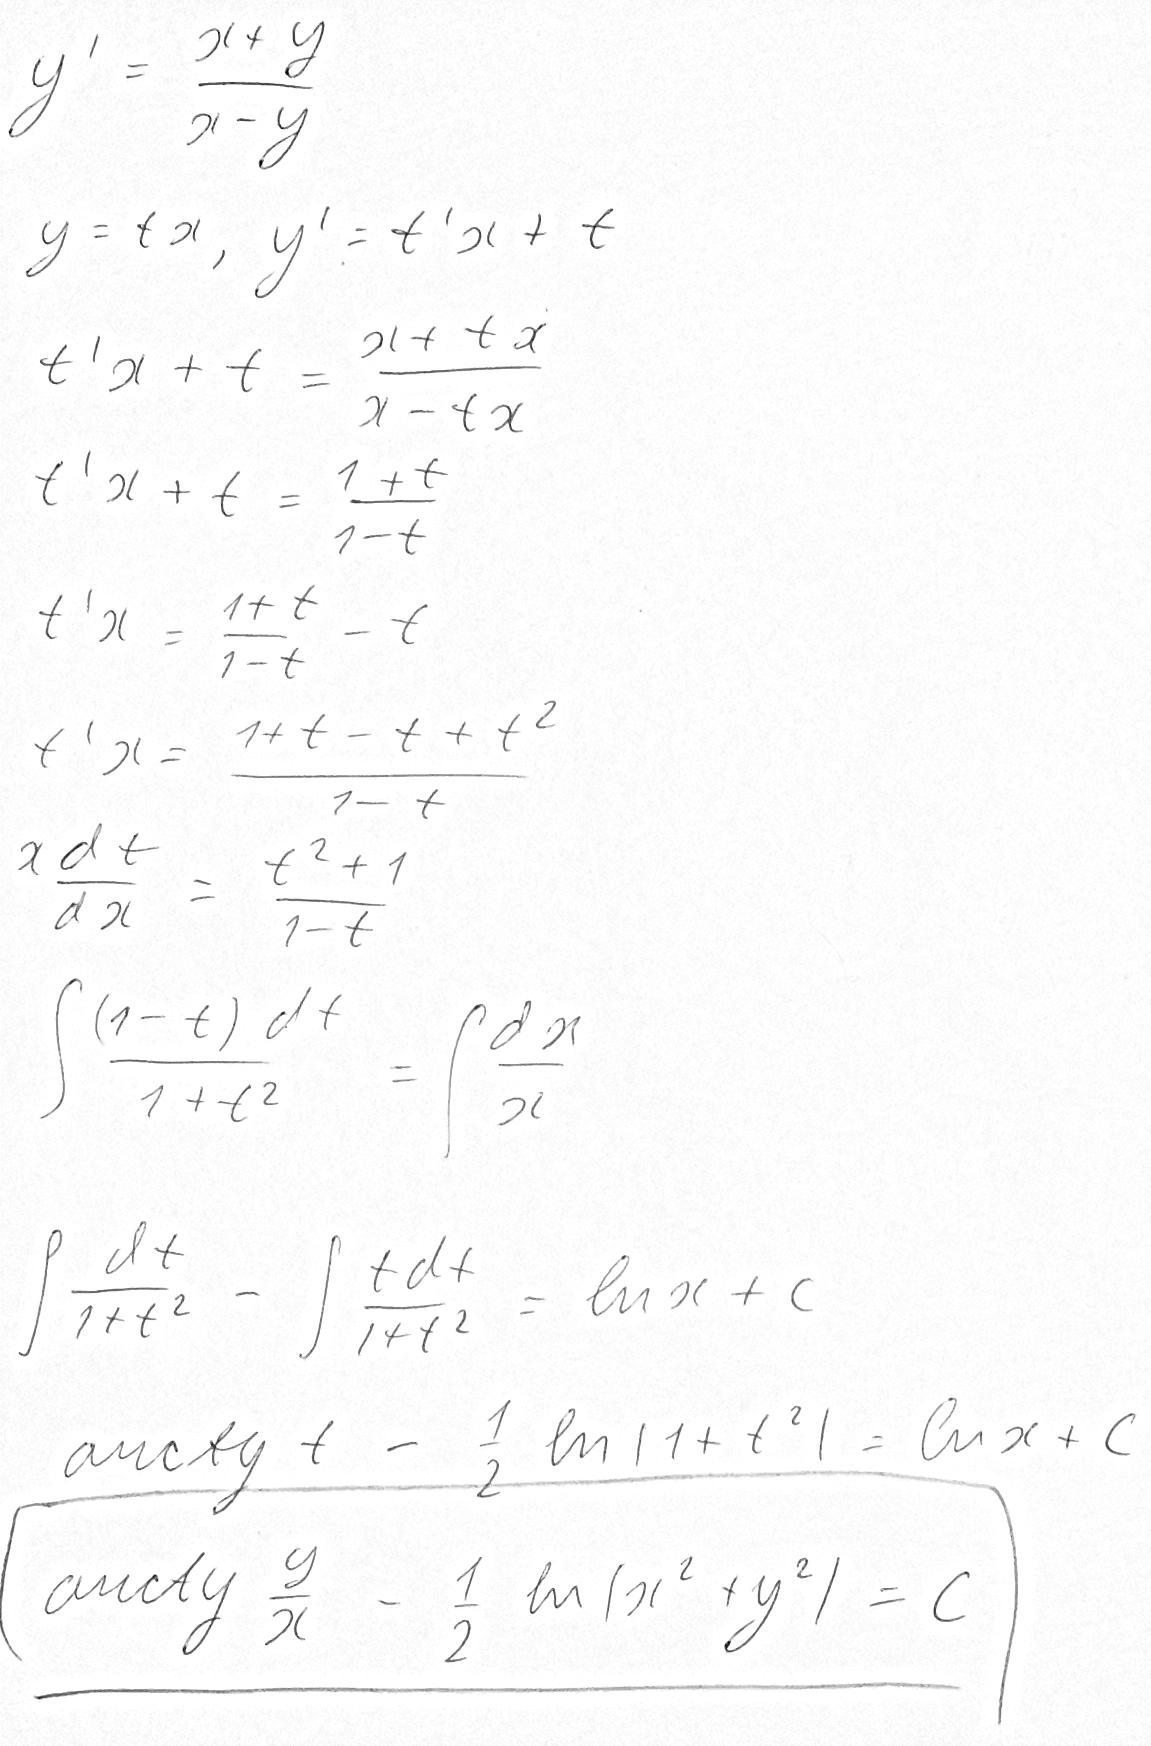 y' = \frac{x+y}{x-y}
y = tx, y' = t'x + t
t'x + t = \frac{x + tx}{x - tx}
t'x + t = \frac{1+t}{1-t}
t'x = \frac{1+t}{1-t} - t
t'x = \frac{1+t-t+t^2}{1-t}
x \frac{dt}{dx} = \frac{t^2+1}{1-t}
\int \frac{(1-t) dt}{1+t^2} = \int \frac{dx}{x}
\int \frac{dt}{1+t^2} - \int \frac{t dt}{1+t^2} = ln x + c
arctg t - \frac{1}{2} ln |1+t^2| = ln x + C
arctg \frac{y}{x} - \frac{1}{2} ln |x^2 + y^2| = C